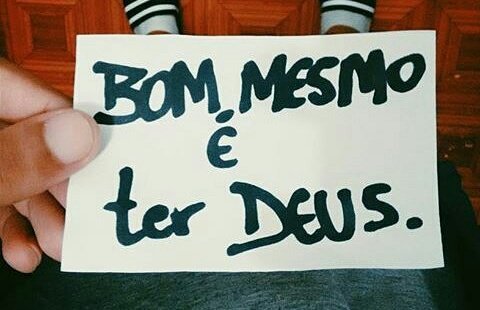 BOM MESMO
É
ter DEUS.